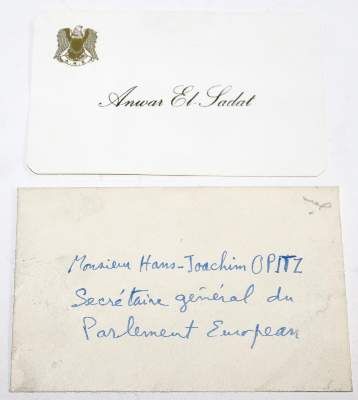 Anwar El-Sadat
Monsieur Hans-Joachim OPITZ
Secrétaire général du
Parlement Européan